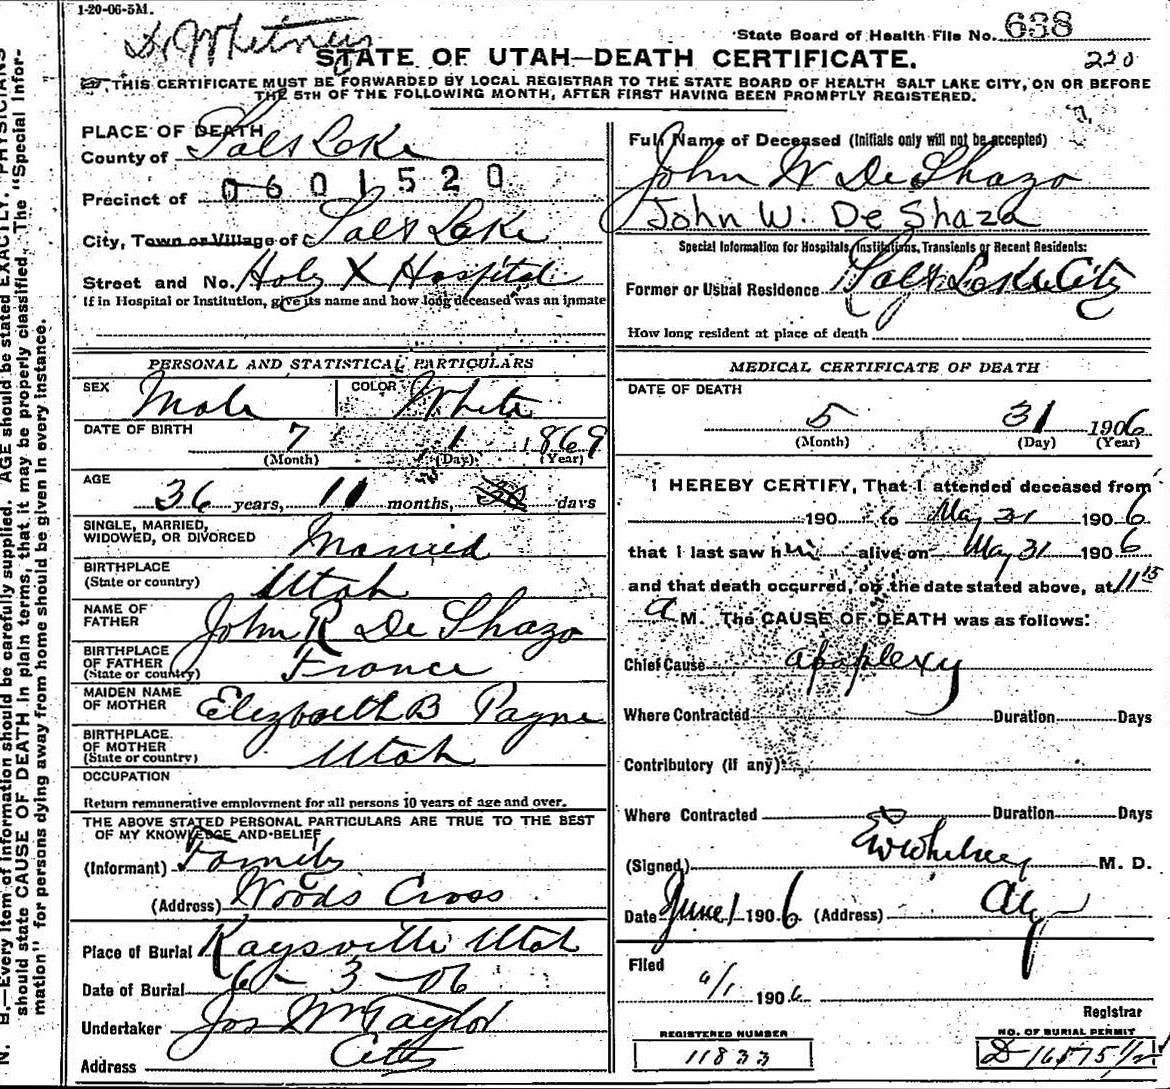 1-20-06-5M.
Dr Whitney
State Board of Health File No. 638
STATE OF UTAH—DEATH CERTIFICATE.
220
THIS CERTIFICATE MUST BE FORWARDED BY LOCAL REGISTRAR TO THE STATE BOARD OF HEALTH SALT LAKE CITY, ON OR BEFORE
THE 5TH OF THE FOLLOWING MONTH, AFTER FIRST HAVING BEEN PROMPTLY REGISTERED.
PLACE OF DEATH
County of Salt Lake
Precinct of 0601520
City, Town or Village of Salt Lake
Street and No. Holy X Hospital
If in Hospital or Institution, give its name and how long deceased was an inmate
Full Name of Deceased (Initials only will not be accepted)
John W De Shazo
John W. De Shazo
Special Information for Hospitals, Institutions, Transients or Recent Residents:
Former or Usual Residence Salt Lake City
How long resident at place of death
PERSONAL AND STATISTICAL PARTICULARS
SEX Male COLOR White
DATE OF BIRTH 7 1 1869
(Month) (Day) (Year)
AGE
36 years, 11 months, days
SINGLE, MARRIED,
WIDOWED, OR DIVORCED Married
BIRTHPLACE
(State or country) Utah
NAME OF
FATHER John R De Shazo
BIRTHPLACE
OF FATHER
(State or country) France
MAIDEN NAME
OF MOTHER Elizbaeth B Payne
BIRTHPLACE
OF MOTHER
(State or country) Utah
OCCUPATION
Return remunerative employment for all persons 10 years of age and over.
THE ABOVE STATED PERSONAL PARTICULARS ARE TRUE TO THE BEST
OF MY KNOWLEDGE AND BELIEF
(Informant) Family
(Address) Woods Cross
Place of Burial Kaysville Utah
Date of Burial 6 – 3 – 06
Undertaker Jos Wm Taylor
Address City
MEDICAL CERTIFICATE OF DEATH
DATE OF DEATH
5 31 1906
(Month) (Day) (Year)
I HEREBY CERTIFY, That I attended deceased from
190 to May 31 1906
that I last saw him alive on May 31 1906
and that death occurred, on the date stated above, at 11 15
a M. The CAUSE OF DEATH was as follows:
Chief Cause apoplexy
Where Contracted Duration Days
Contributory (if any)
Where Contracted Duration Days
(Signed) EWWhitney M. D.
Date June 1 1906 (Address) City
Filed
6/1 1906
Registrar
REGISTERED NUMBER
11833
NO. OF BURIAL PERMIT
N. B.—Every item of information should be carefully supplied. AGE should be stated EXACTLY. PHYSICIANS
should state CAUSE OF DEATH in plain terms, that it may be properly classified. The "Special Infor-
mation" for persons dying away from home should be given in every instance.